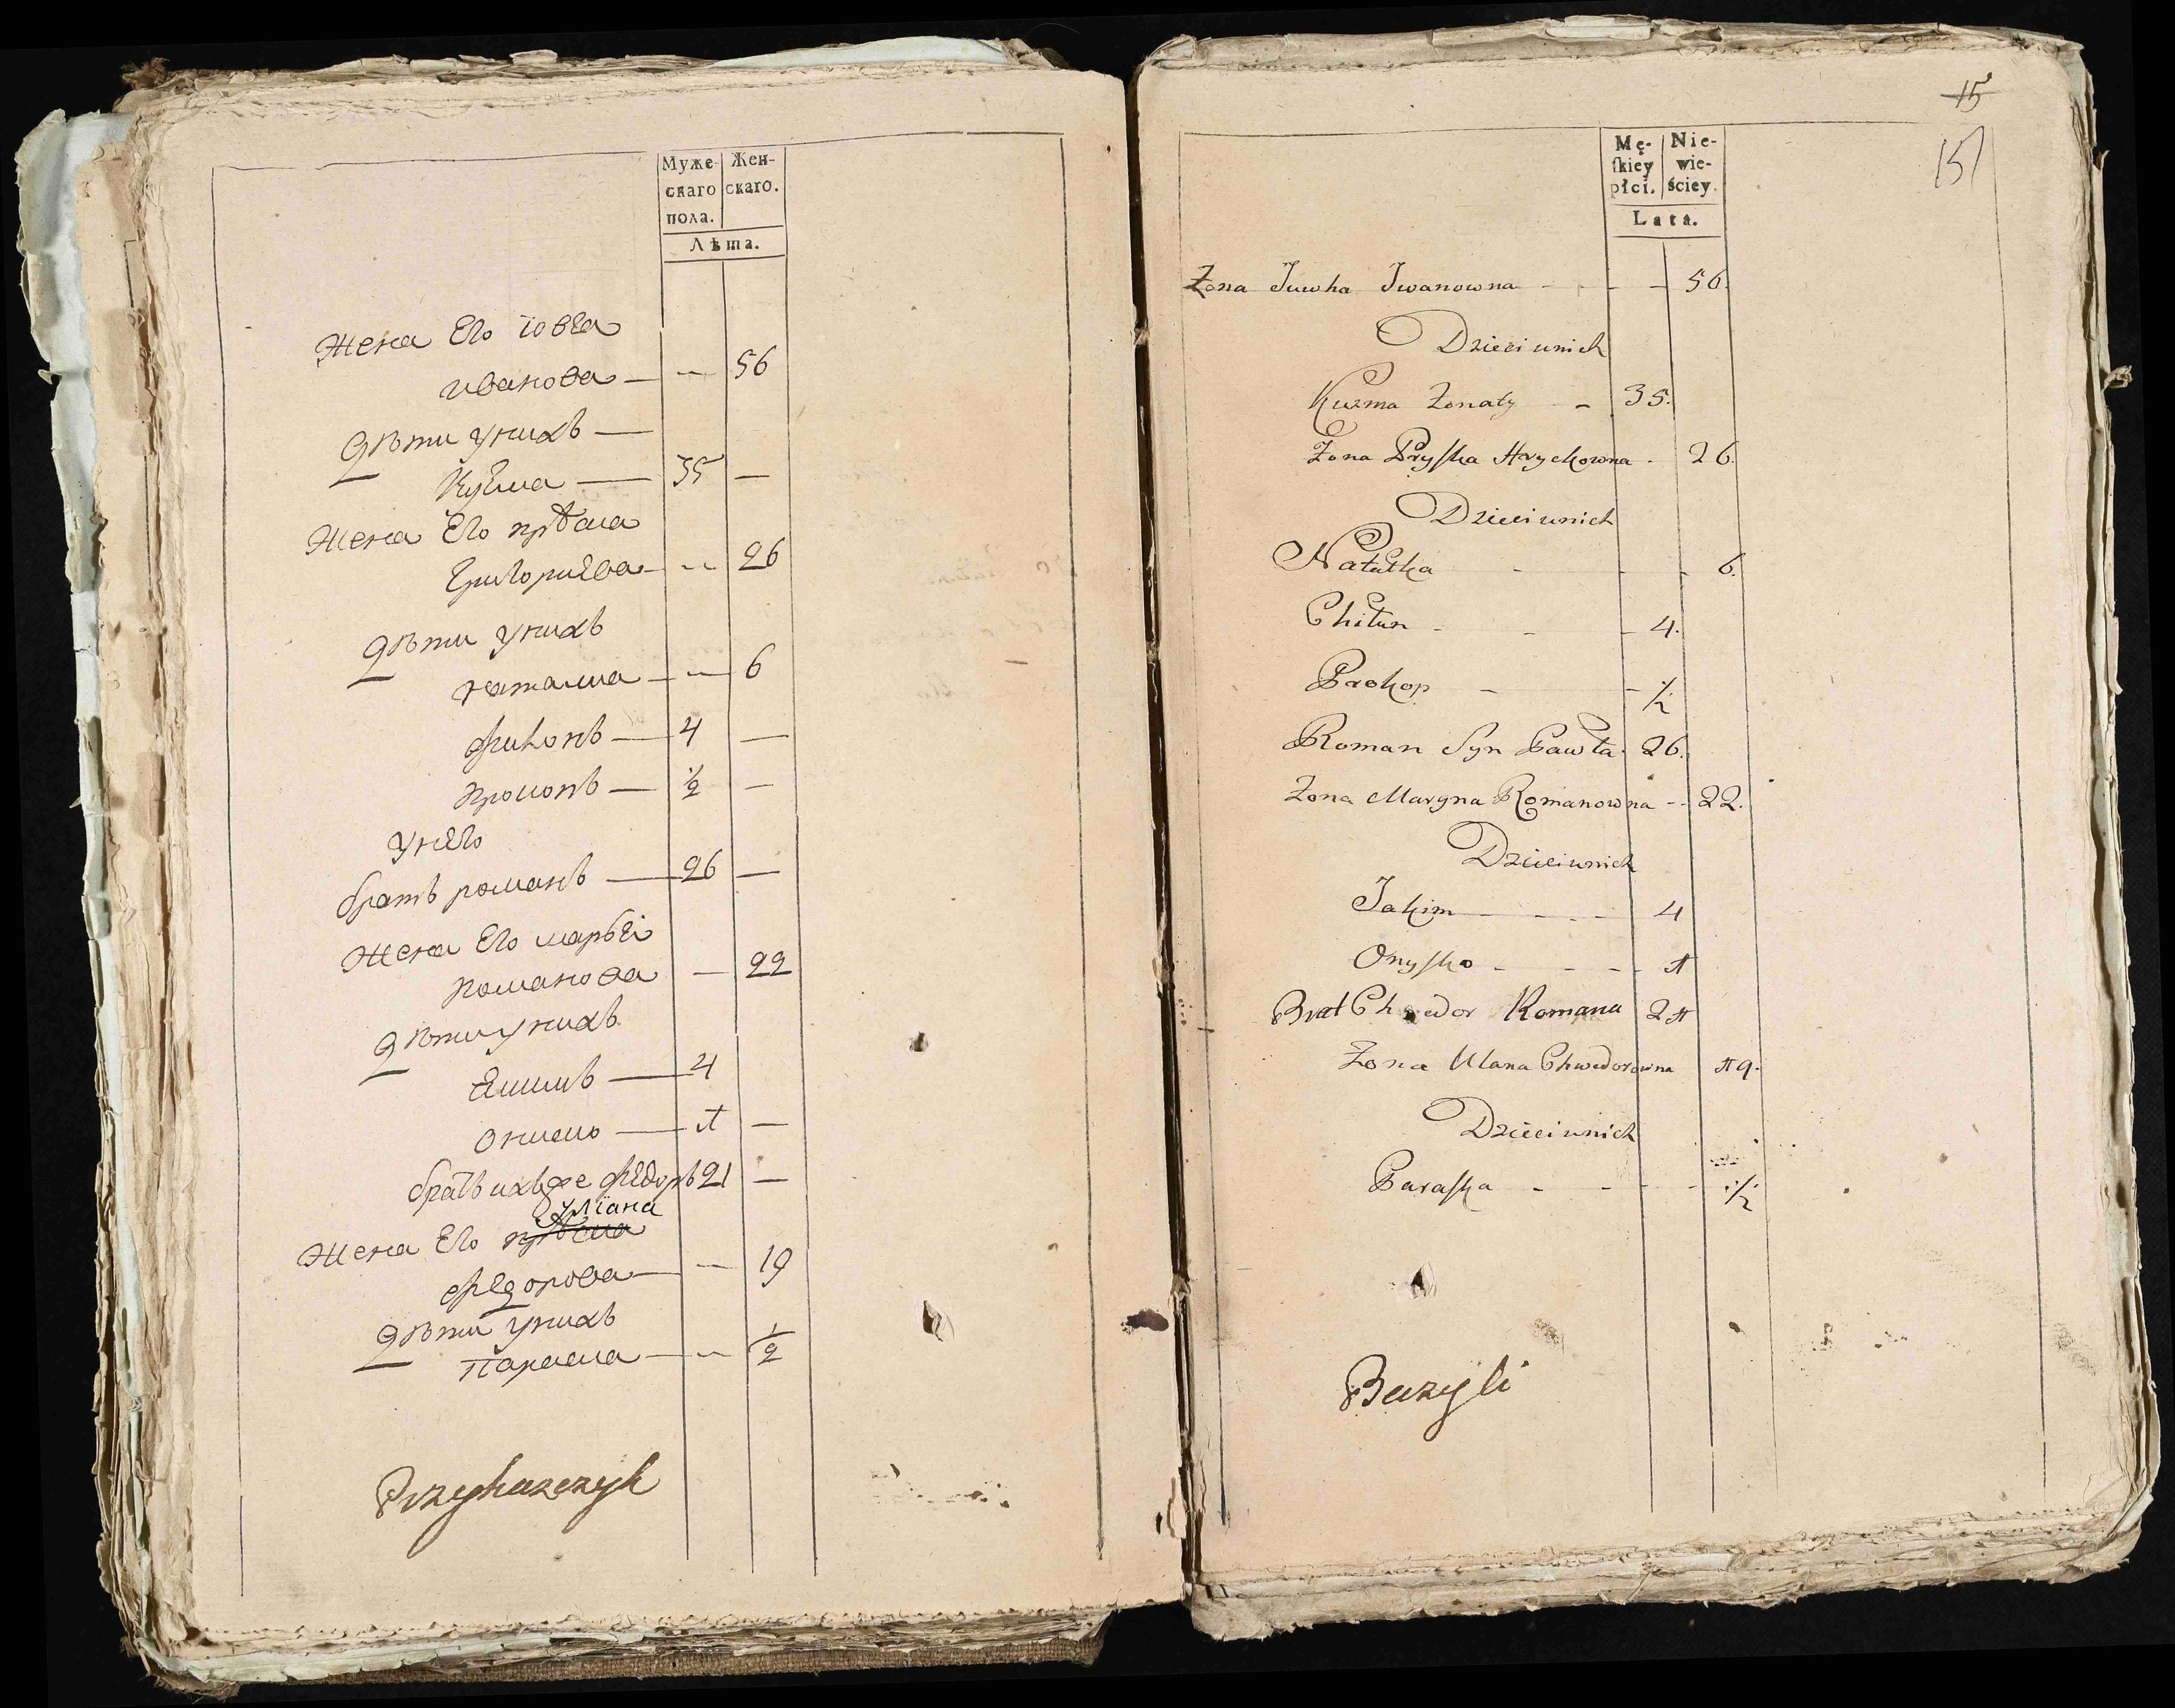 Муже-
скаго
пола.
Жен-
скаго.
Лѣта.
Жена Его ювга
иванова — — 56
дѣти унихъ —
Кузма — 35 —
Жена Его прѣска
Григориева — — 26
дѣти унихъ
наталка — — 6
филонъ — 4 —
прокопъ — 1/2 —
унего
братъ романъ — 26 —
Жена Его
романова — 22
дѣти унихъ
Якимъ — 4
ониско — 1 —
братъ ихъ же федоръ 21 —
уліана
Жена Его прѣска
федорова — — 19
дѣти унихъ
Параска — — 1/2
Przykazczyk
15
15
Mę-
skiey
płci.
Nie-
wie-
ściey.
Lata.
Żona Juwha Jwanowna - - - - 56.
Dzieci unich
Kuzma Żonaty - 35.
Żona Pryska Hryckowna - 26.
Dzieci unich
Natałka - - - 6.
Chiłun - - - 4.
Prokop - - 1/2
Roman Syn Pawła 26.
Żona Maryna Romanowna - - 22.
Dzieci unich
Jakim - - - - 4
Onysko - - - - 1
Brat Chwedor Romana 21
Żona Ulana Chwedorowna 19.
Dzieci unich
Paraska - - - - 1/2
Bazyli